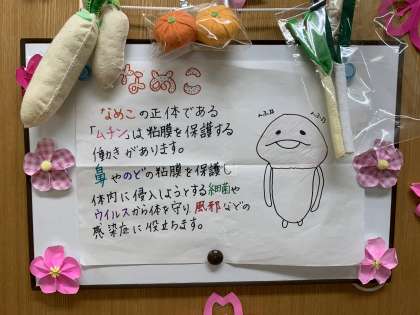 なめこ
なめこの正体である
「ムチン」は粘膜を保護する
働きがあります。
鼻やのどの粘膜を保護し
体内に侵入しようとする細菌や
ウイルスから体を守り風邪などの
感染症に役立ちます。
んふんふ
んふんふ